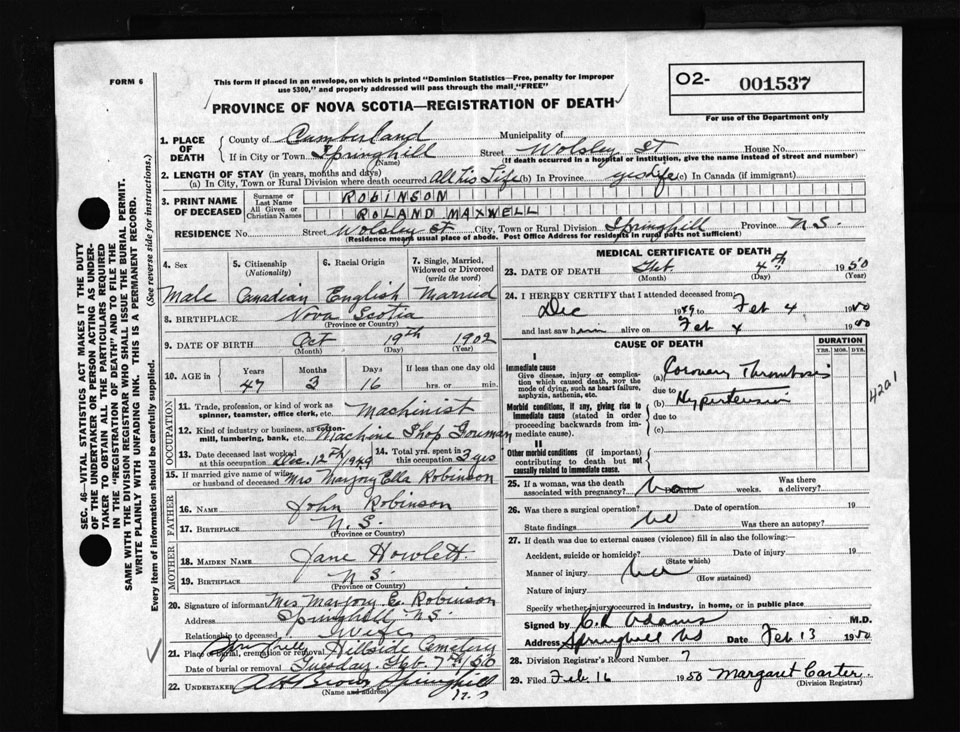 FORM 6
This form if placed in an envelope, on which is printed "Dominion Statistics—Free, penalty for improper
use $300," and properly addressed will pass through the mail "FREE"
PROVINCE OF NOVA SCOTIA—REGISTRATION OF DEATH
O2- 001537
For use of the Department only
SEC. 46—VITAL STATISTICS ACT MAKES IT THE DUTY
OF THE UNDERTAKER OR PERSON ACTING AS UNDER-
TAKER TO OBTAIN ALL THE PARTICULARS REQUIRED
IN THE "REGISTRATION OF DEATH" AND TO FILE THE
SAME WITH THE DIVISION REGISTRAR WHO SHALL ISSUE THE BURIAL PERMIT.
WRITE PLAINLY WITH UNFADING INK. THIS IS A PERMANENT RECORD.
Every item of information should be carefully supplied. (See reverse side for instructions.)
1. PLACE OF DEATH
County of Cumberland Municipality of
If in City or Town Springhill Street Wolsley St House No.
(Name) (If death occurred in a hospital or institution, give the name instead of street and number)
2. LENGTH OF STAY (in years, months and days)
(a) In City, Town or Rural Division where death occurred All his Life (b) In Province life (c) In Canada (if immigrant)
3. PRINT NAME OF DECEASED
Surname or Last Name ROBINSON
All Given or Christian Names ROLAND MAXWELL
RESIDENCE No. Street Wolsley St City, Town or Rural Division Springhill Province N.S.
(Residence means usual place of abode. Post Office Address for residents in rural parts not sufficient)
4. Sex Male
5. Citizenship (Nationality) Canadian
6. Racial Origin English
7. Single, Married, Widowed or Divorced (write the word) Married
8. BIRTHPLACE Nova Scotia
(Province or Country)
9. DATE OF BIRTH Oct 19th 1902
(Month) (Day) (Year)
10. AGE in Years Months Days If less than one day old
47 3 16 hrs. or min.
OCCUPATION
11. Trade, profession, or kind of work as spinner, teamster, office clerk, etc. Machinist
12. Kind of industry or business, as cotton-mill, lumbering, bank, etc. Machine Shop Forman
13. Date deceased last worked at this occupation Dec. 12th/1949
14. Total yrs. spent in this occupation 3 yrs
15. If married give name of wife or husband of deceased Mrs Marjory Ella Robinson
FATHER
16. Name John Robinson
17. Birthplace N.S.
(Province or Country)
MOTHER
18. Maiden Name Jane Howlett
19. Birthplace N.S.
(Province or Country)
20. Signature of informant Mrs Marjory E. Robinson
Address Springhill N.S.
Relationship to deceased Wife
21. Place of burial, cremation or removal Hillside Cemetery
Date of burial or removal Tuesday. Feb. 7th/50
22. Undertaker A H Brown Springhill
(Name and address)
MEDICAL CERTIFICATE OF DEATH
23. DATE OF DEATH Feb. 4th 1950
(Month) (Day)
24. I HEREBY CERTIFY that I attended deceased from:
Dec 1949 to Feb 4 1950
and last saw him alive on Feb 4 1950
CAUSE OF DEATH
DURATION
YRS. MOS. DYS.
I
Immediate cause
Give disease, injury or complication which caused death, NOT the mode of dying, such as heart failure, asphyxia, asthenia, etc.
(a) Coronary Thrombosis
due to
Morbid conditions, if any, giving rise to immediate cause (stated in order proceeding backwards from immediate cause).
(b) Hypertension
due to
(c)
II
Other morbid conditions (if important) contributing to death but not causally related to immediate cause.
420.1
25. If a woman, was the death associated with pregnancy? no Duration weeks. Was there a delivery?
26. Was there a surgical operation? Date of operation 19
State findings no Was there an autopsy?
27. If death was due to external causes (violence) fill in also the following:—
Accident, suicide or homicide? Date of injury 19
(State which)
Manner of injury
(How sustained)
Nature of injury
Specify whether injury occurred in industry, in home, or in public place
Signed by C.L. Adams M.D.
Address Springhill NS Date Feb 13 1950
28. Division Registrar's Record Number 7
29. Filed Feb 16 1950 Margaret Carter
(Division Registrar)